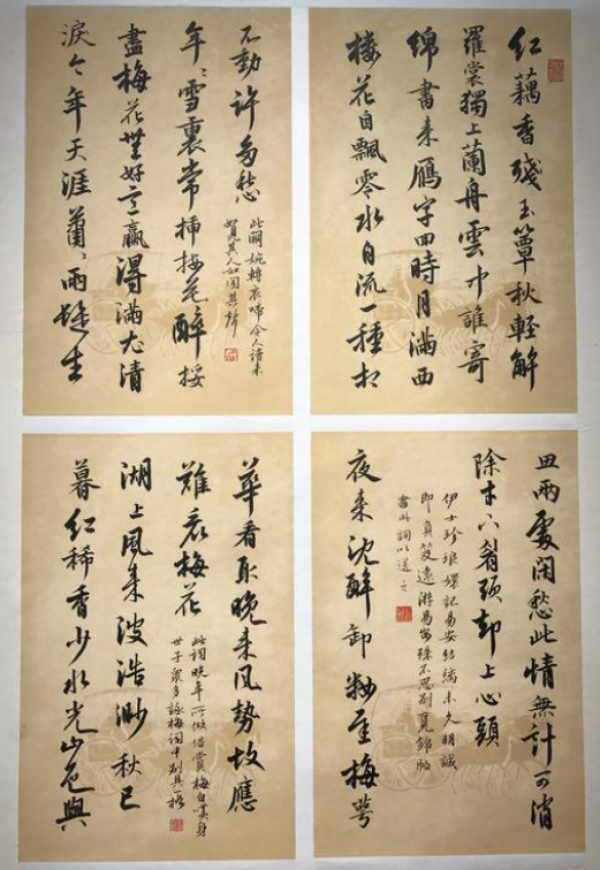 红藕香殘玉簟秋輕解
羅裳獨上蘭舟雲中誰寄
錦書来雁字回時月滿西
樓花自飄零水自流一種相
思兩處闲愁此情無計可消
除才下眉頭卻上心頭
伊士珍琅嬛記易安结褵未久明誠
即負笈遠游易安殊不忍别覓錦帕
書此詞以送之
夜来沈醉卸妝遲梅萼
不動許多愁
此闋婉轉哀啼令人讀来
見其人如聞其聲
年〻雪裏常插梅花醉挼
盡梅花無好意贏得滿衣清
淚今年天涯蕭〻兩鬢生
華看取晚来风勢故應
難看梅花
此詞晚年所做借賞梅自嘆身
世于衆多詠梅詞中别具一格
湖上風来波浩渺秋已
暮红稀香少水光山色與